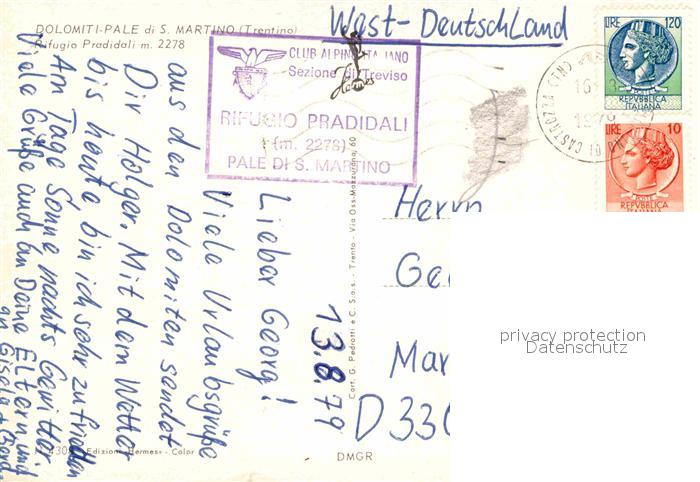 DOLOMITI-PALE di S. MARTINO (Trentino)
Rifugio Pradidali m. 2278
West-Deutschland
CLUB ALPINO ITALIANO
Sezione di Treviso
RIFUGIO PRADIDALI
(m. 2278)
PALE DI S. MARTINO
Hermes
LIRE 120
REPVBBLICA
ITALIANA
LIRE 10
POSTE
REPVBBLICA
ITALIANA
DI CASTROZZA (TN)
13.8.79
Lieber Georg!
Viele Urlaubsgrüße
aus den Dolomiten sendet
Dir Holger. Mit dem Wetter
bis heute bin ich sehr zufrieden
Am Tage Sonne nachts Gewitter.
Viele Grüße auch an Deine Eltern und
an Gisela + Bernd
Herrn
Ge
Mar
D 330
privacy protection
Datenschutz
Cart. G. Pedrotti e C. S.a.s. - Trento - Via Oss-Mazzurana, 60
N. 430 Edizioni «Hermes» - Color
DMGR